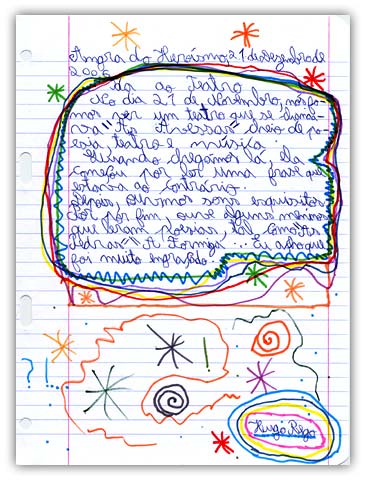 Angra do Heroísmo, 21 de dezembro de
2006
Ida ao Teatro
No dia 21 de Novembro, nós fo-
mos ver um teatro que se chama-
va "Ao Avessas" cheio de po-
esia, teatro e música.
Quando chegamos lá, ela
começou por ler uma frase que
estava ao contrário.
Depois, ouvimos sons esquisitos
e por fim, ouve alguns meninos
que leram poesias, tal como: As
Pedras" "A Formiga"... Eu acho que
foi muito engraçado!
?!...
!
Hugo Rego